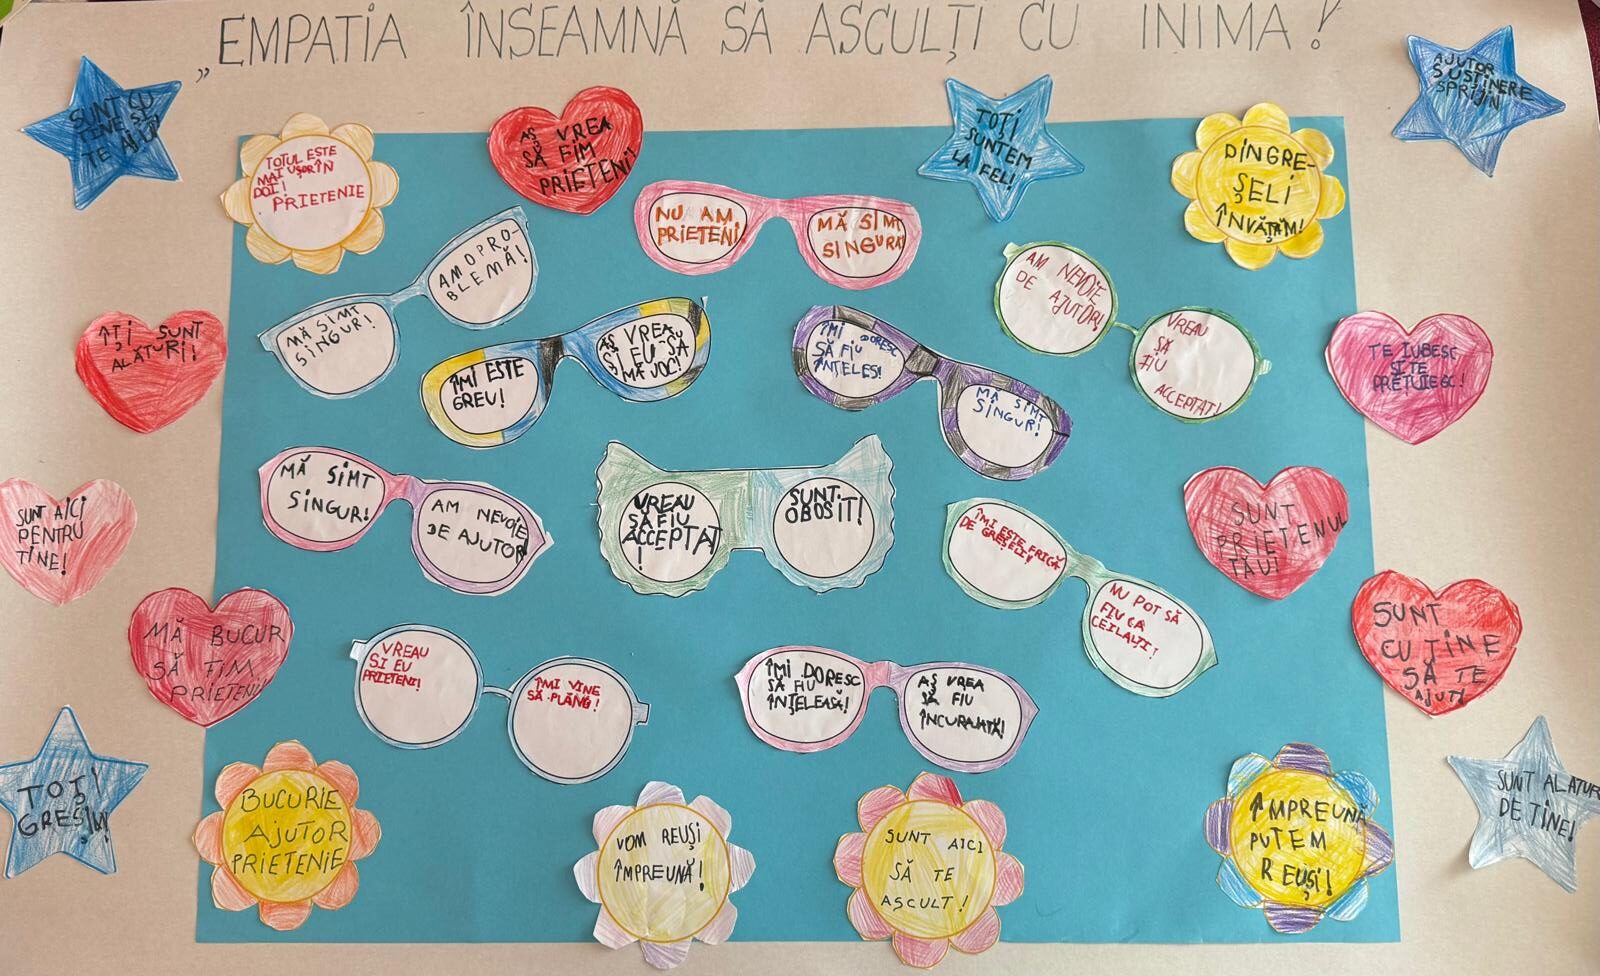 „EMPATIA ÎNSEAMNĂ SĂ ASCULȚI CU INIMA!
SUNT CU
TINE SĂ
TE AJUT
TOTUL ESTE
MAI UȘOR ÎN
DOI!
PRIETENIE
AȘ VREA
SĂ FIM
PRIETENI!
TOȚI
SUNTEM
LA FEL!
DIN GRE-
ȘELI
ÎNVĂȚĂM!
AJUTOR
SUSȚINERE
SPRIJIN
MĂ SIMT
SINGUR!
AM O PRO-
BLEMĂ!
NU AM
PRIETENI!
MĂ SIMT
SINGURĂ!
AM NEVOIE
DE AJUTOR!
VREAU
SĂ
FIU
ACCEPTAT!
ÎȚI SUNT
ALĂTURI!
ÎMI ESTE
GREU!
AȘ VREA
ȘI EU SĂ
MĂ JOC!
ÎMI DORESC
SĂ FIU
ÎNȚELES!
MĂ SIMT
SINGUR!
TE IUBESC
ȘI TE
PREȚUIESC!
SUNT AICI
PENTRU
TINE!
MĂ SIMT
SINGUR!
AM NEVOIE
DE AJUTOR
VREAU
SĂ FIU
ACCEPTAT
!
SUNT
OBOSIT!
ÎMI ESTE FRICĂ
DE GREȘELI!
NU POT SĂ
FIU CA
CEILALȚI!
SUNT
PRIETENUL
TĂU!
MĂ BUCUR
SĂ FIM
PRIETENI!
VREAU
ȘI EU
PRIETENI!
ÎMI VINE
SĂ PLÂNG!
ÎMI DORESC
SĂ FIU
ÎNȚELEASĂ!
AȘ VREA
SĂ FIU
ÎNCURAJATĂ!
SUNT
CU TINE
SĂ TE
AJUT!
TOȚI
GREȘIM!
BUCURIE
AJUTOR
PRIETENIE
VOM REUȘI
ÎMPREUNĂ!
SUNT AICI
SĂ TE
ASCULT!
ÎMPREUNĂ
PUTEM
REUȘI!
SUNT ALATUR
DE TINE!